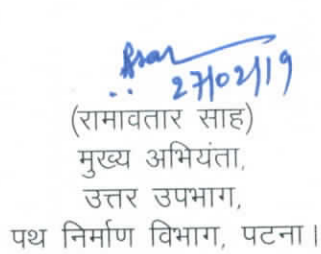 27/02/19
(रामावतार साह)
मुख्य अभियंता,
उत्तर उपभाग,
पथ निर्माण विभाग, पटना।